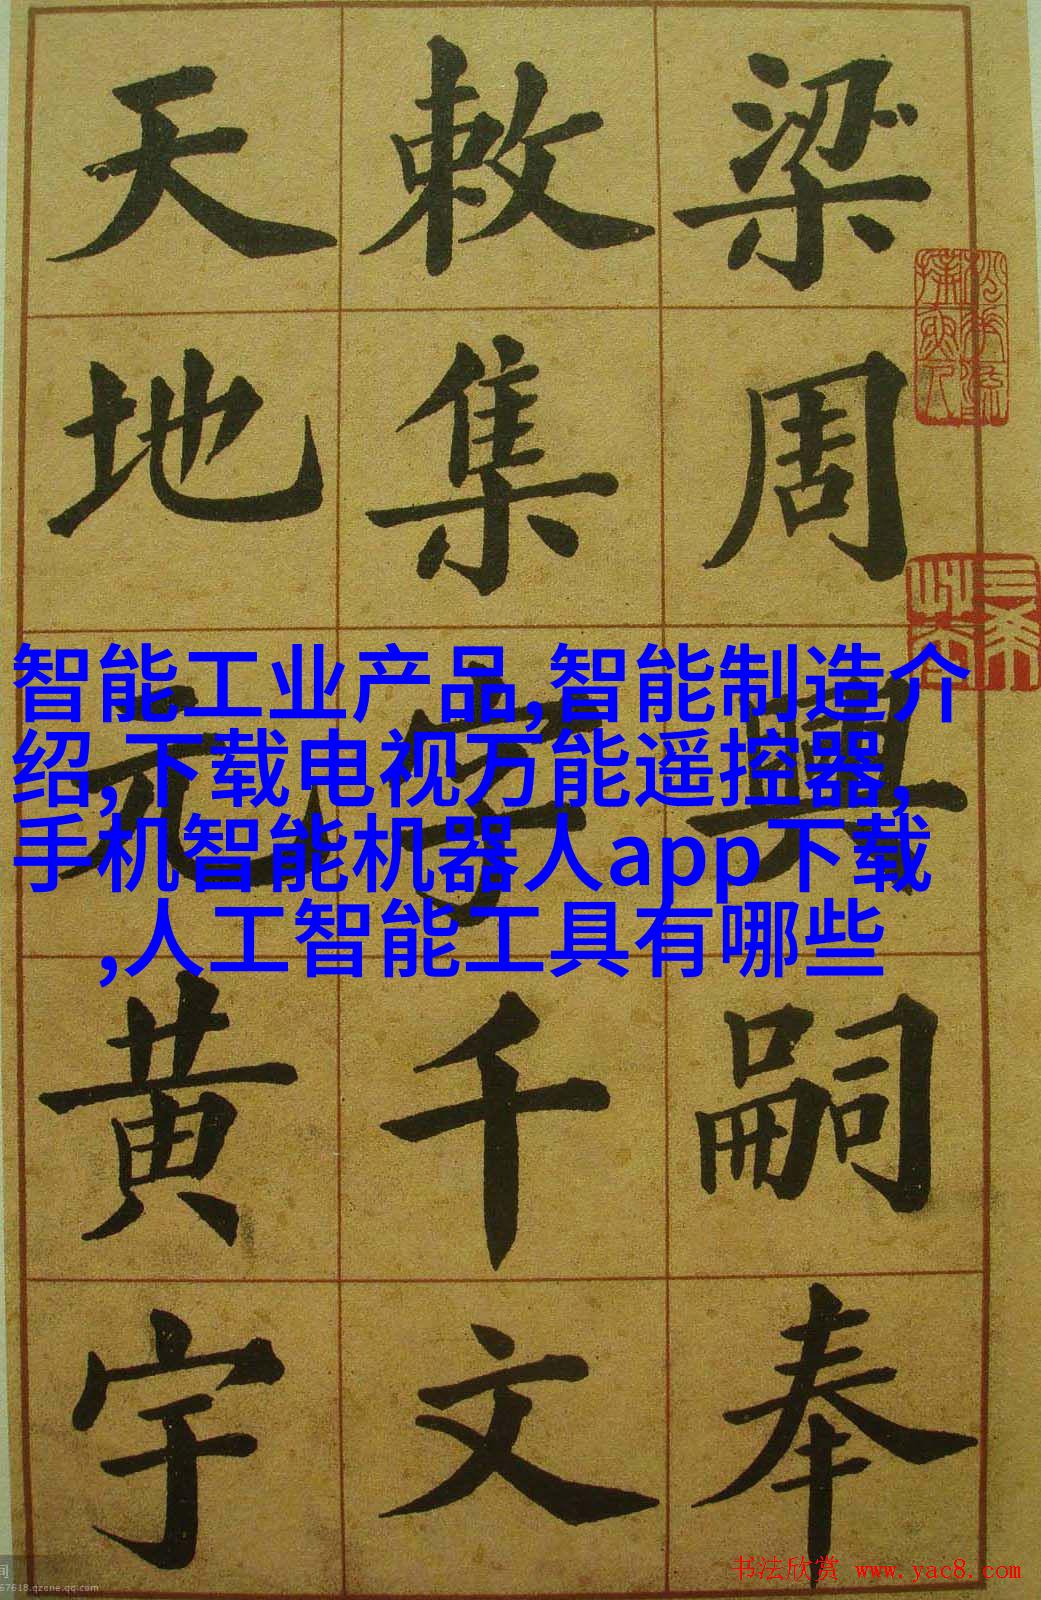 梁周興嗣奉
敕集字千文
天地元黄宇
智能工业产品,智能制造介
绍,下载电视万能遥控器,
手机智能机器人app下载
,人工智能工具有哪些
书法欣赏 www.yac8.com
间
67618.qzone.qq.com